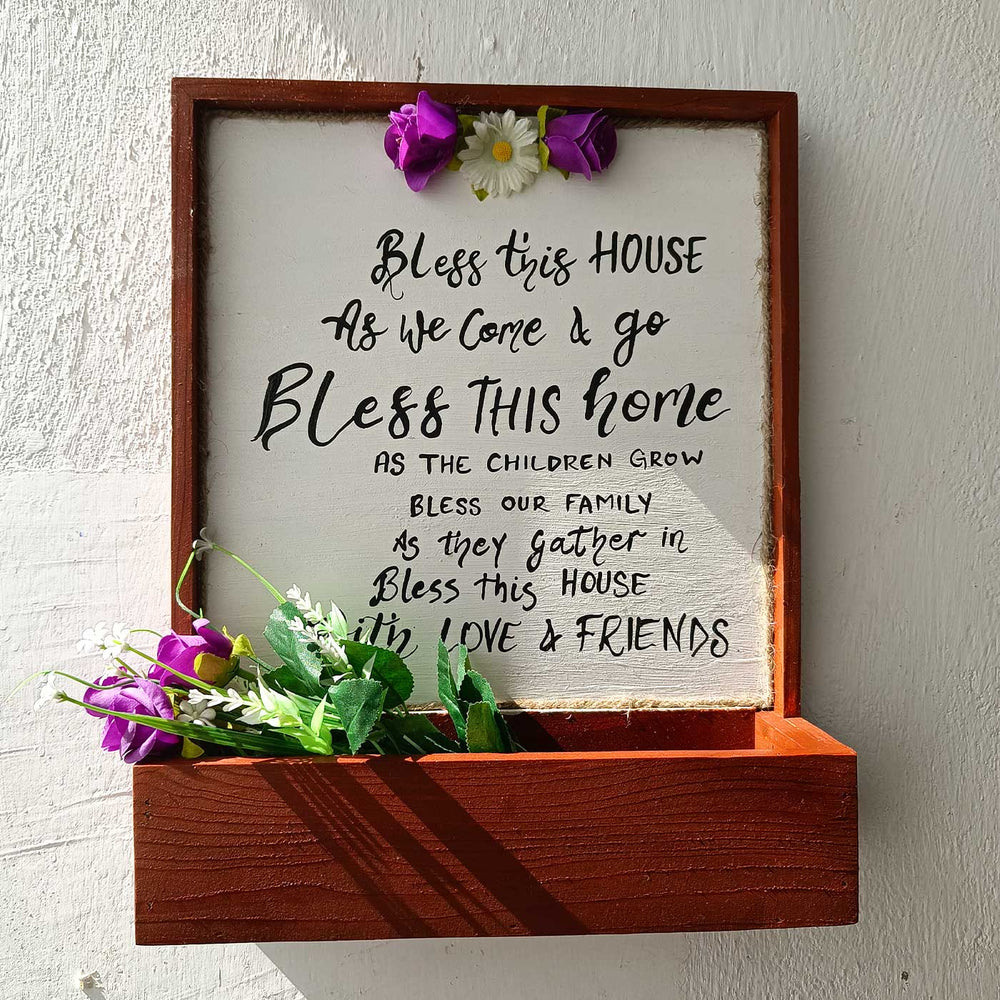 Bless this HOUSE
As we Come & go
Bless THIS home
AS THE CHILDREN GROW
BLESS OUR FAMILY
As they gather in
Bless this HOUSE
with LOVE & FRIENDS